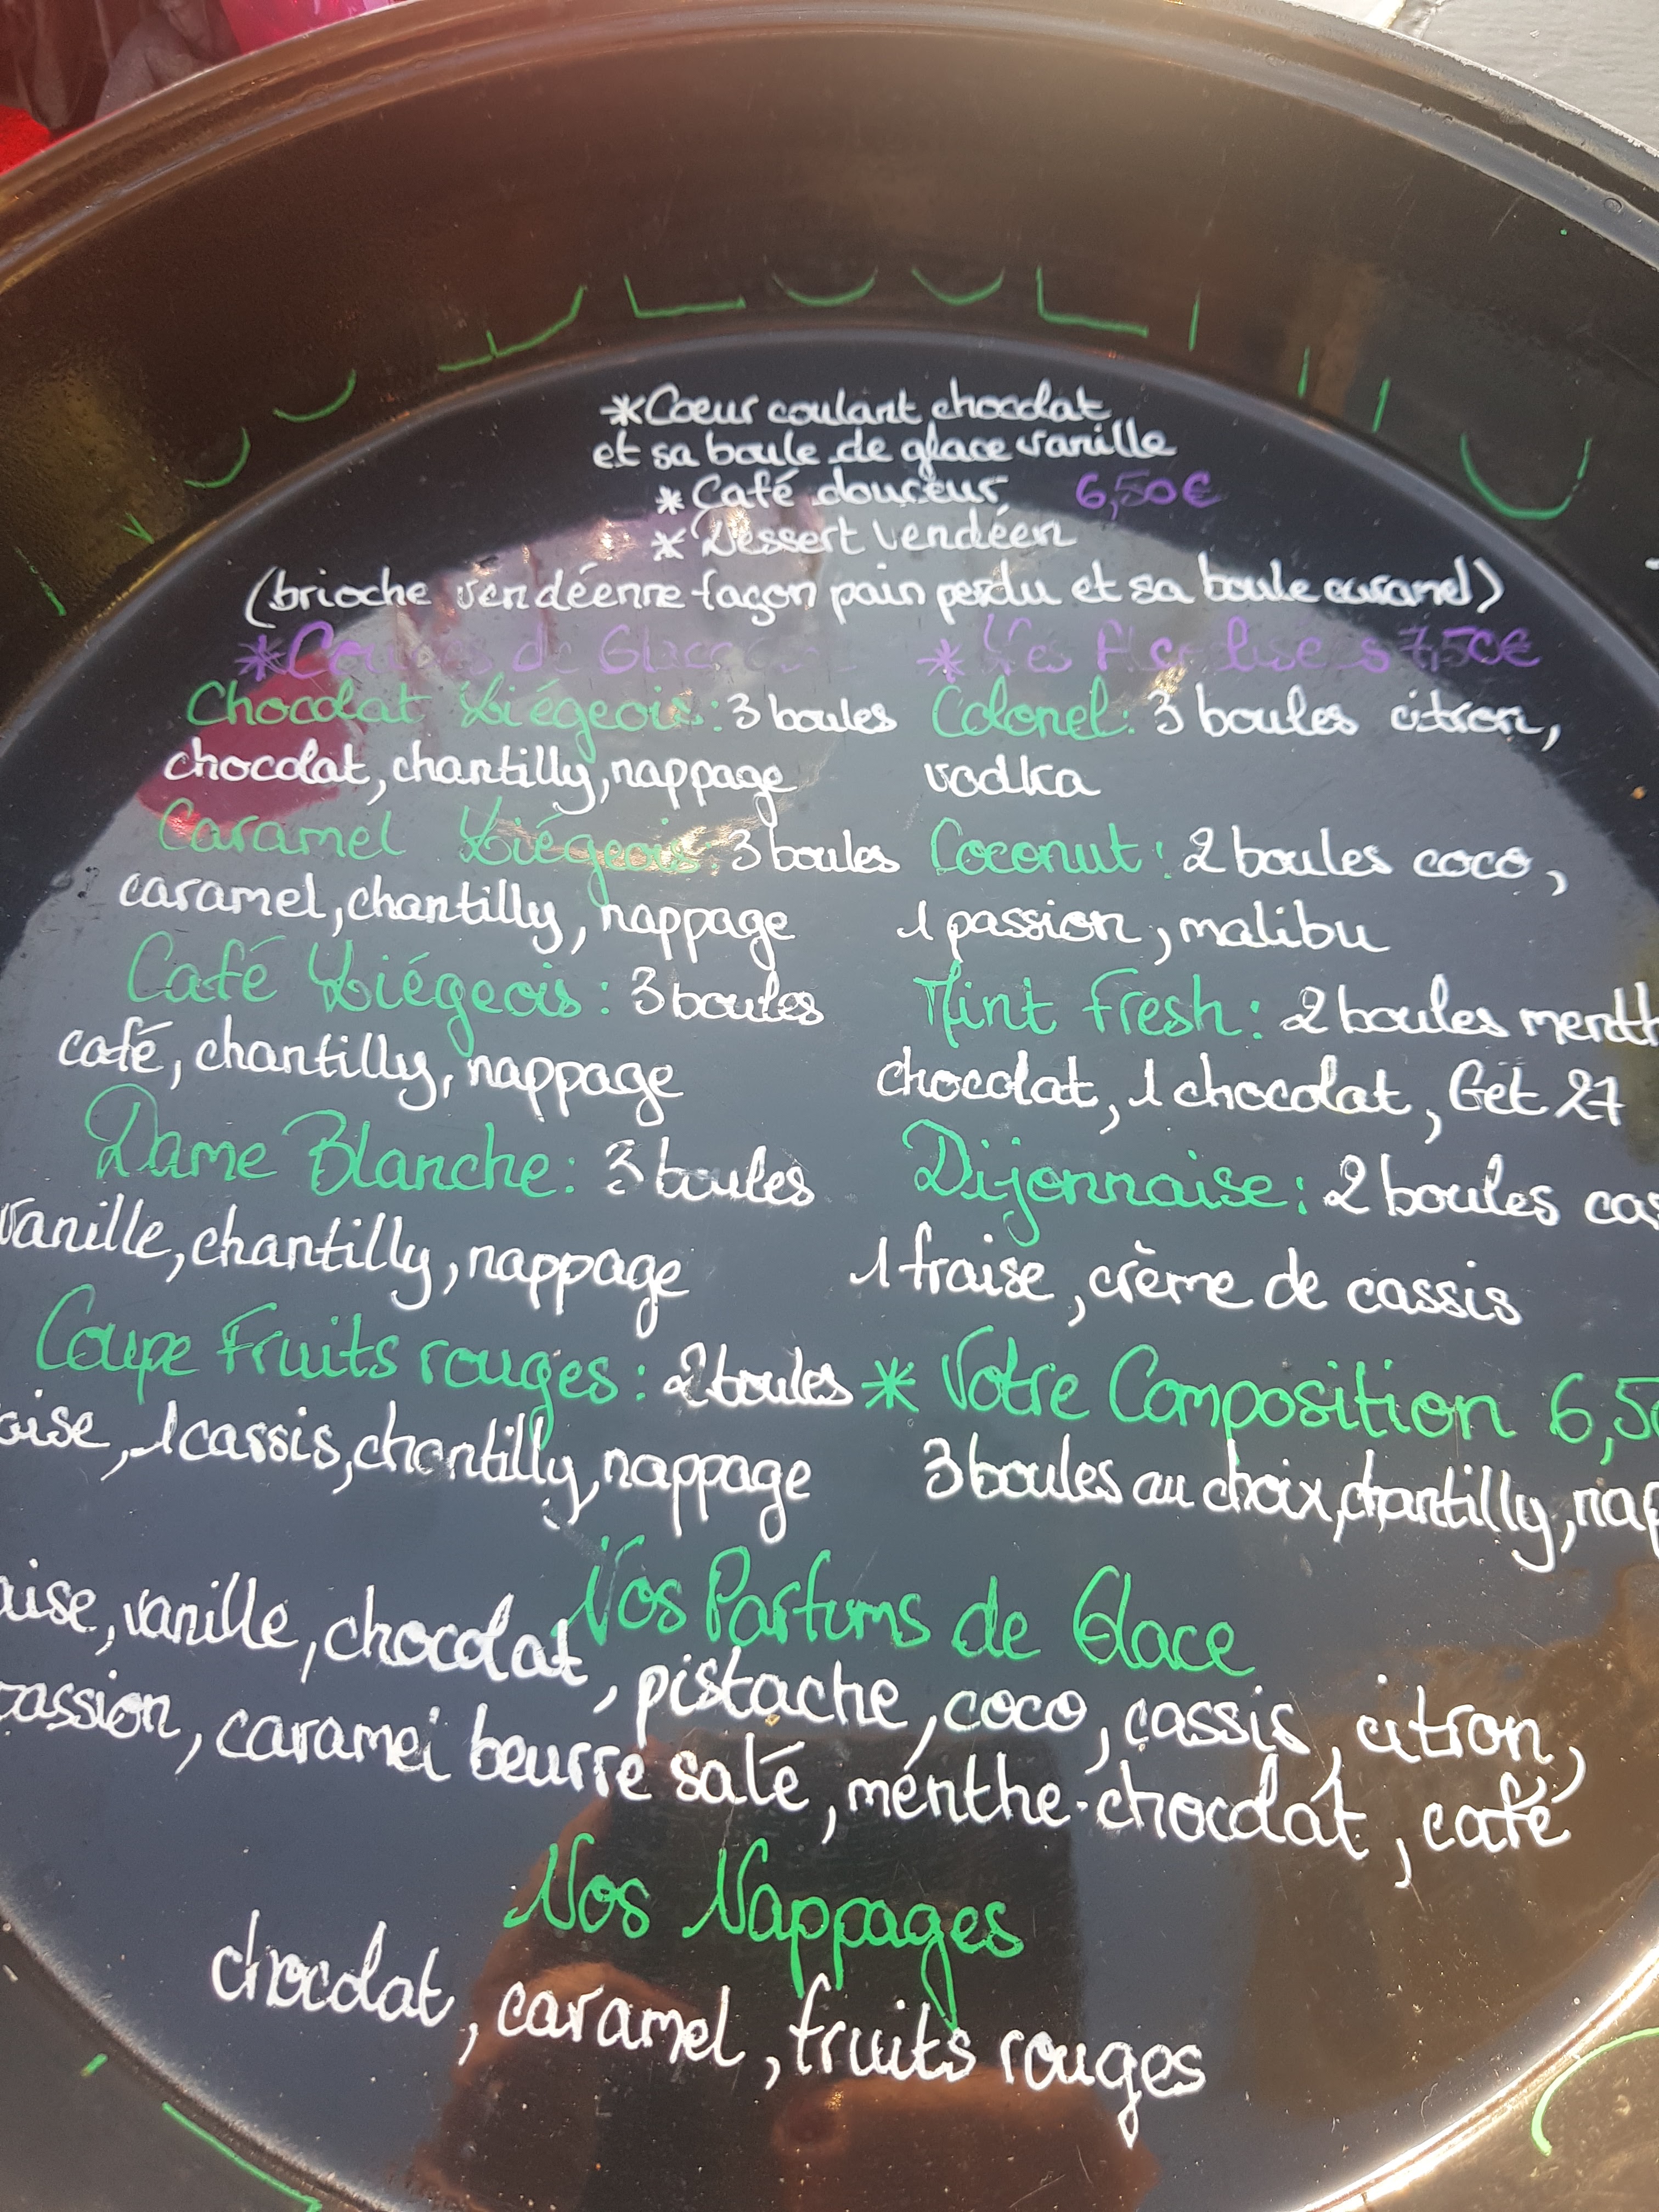 *Cœur coulant chocolat
et sa boule de glace vanille
* Café douceur 6,50€
* Dessert Vendéen
(brioche vendéenne façon pain perdu et sa boule caramel)
*Coupes de Glace
* Les 7,50€
Chocolat Liégeois: 3 boules
chocolat, chantilly, nappage
Caramel Liégeois: 3 boules
caramel, chantilly, nappage
Café Liégeois: 3 boules
café, chantilly, nappage
Dame Blanche: 3 boules
vanille, chantilly, nappage
Coupe Fruits rouges: 2 boules
aise, 1 cassis, chantilly, nappage
Colonel: 3 boules citron,
vodka
Coconut: 2 boules coco,
1 passion, malibu
Mint Fresh: 2 boules menth
chocolat, 1 chocolat, Get 27
Dijonnaise: 2 boules cas
1 fraise, crème de cassis
* Votre Composition 6,50
3 boules au choix, chantilly, nap
Nos Parfums de Glace
aise, vanille, chocolat, pistache, coco, cassis, citron,
passion, caramel beurre salé, menthe-chocolat, café
Nos Nappages
chocolat, caramel, fruits rouges